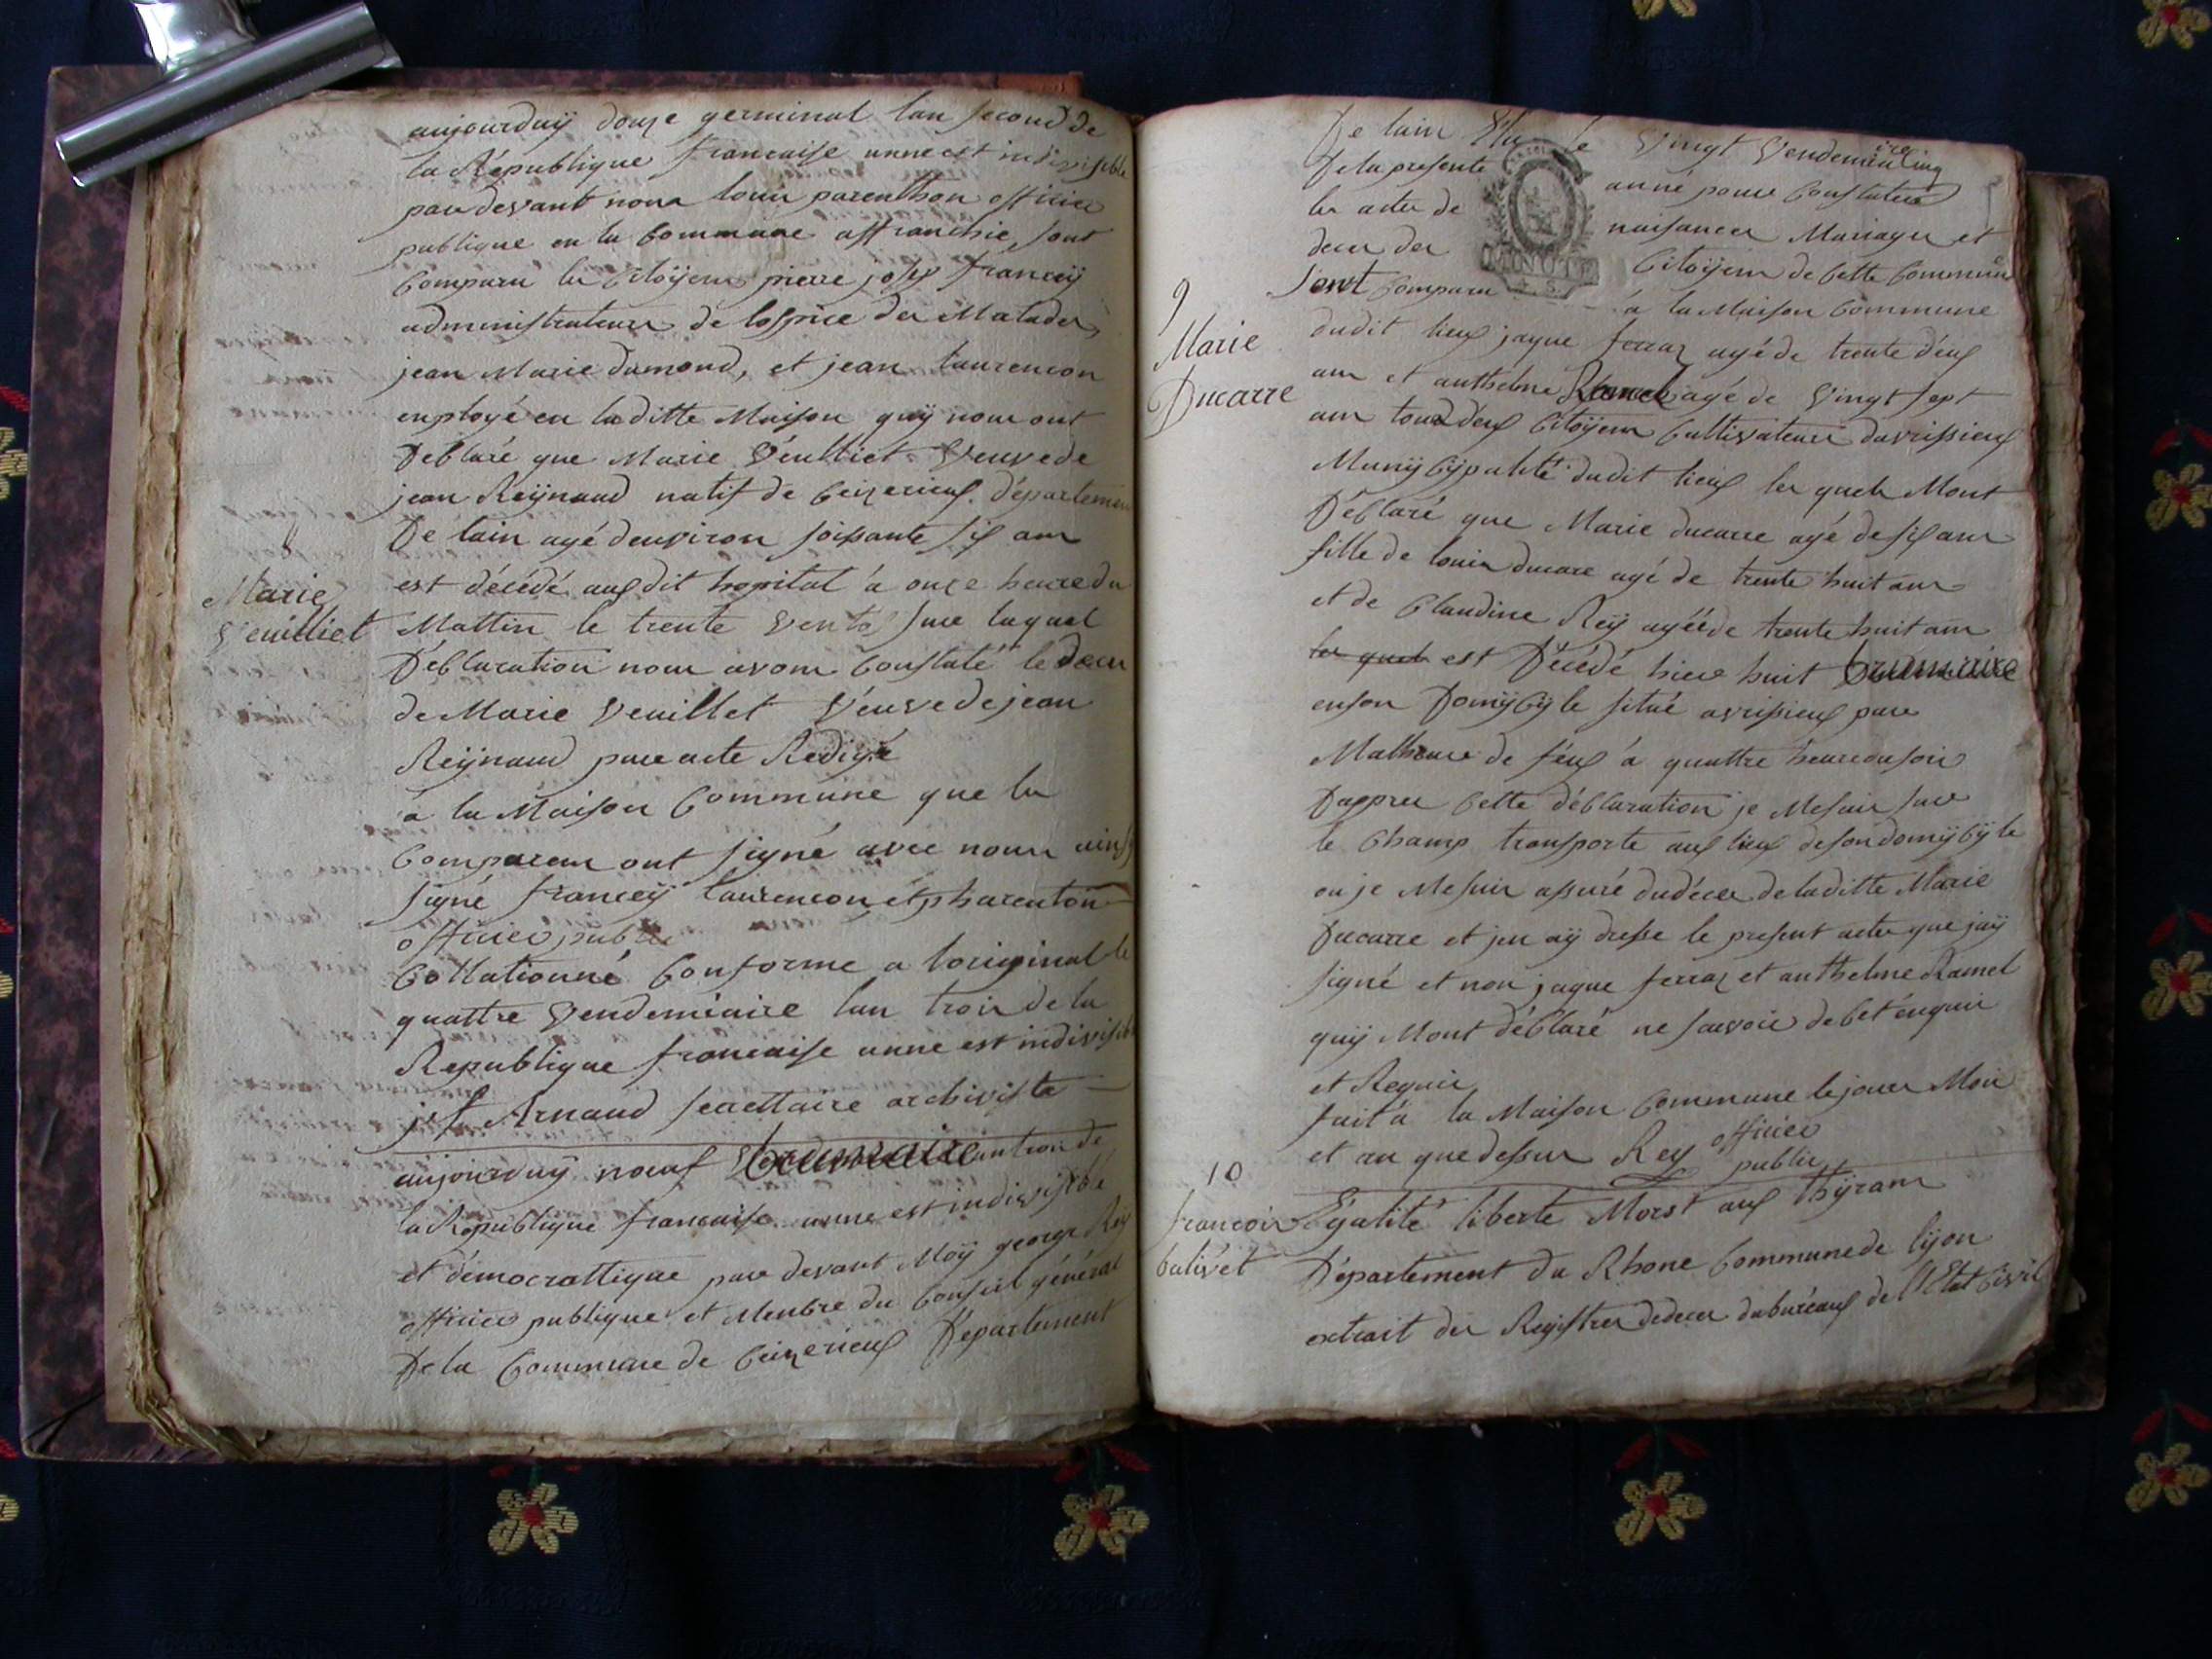 aujourduÿ douze germinal lan second de
la République francaise unne est indivisible
par devant nous louis parenthon officier
publique en la Commune affranchie sont
Comparu les Citoÿens pierre josep francey
administrateur de lospice des Malades,
jean Marie dumond, et jean laurencon
employé en laditte Maison quÿ nous ont
Déblaré que Marie Véulliet Veuve de
jean Reÿnaud natif de Ceizerieux département
De lain agé denviron soissante six ans
8
est décédé aux dit hopital à onze heure du
Marie
Veuilliet
Mattin le trente Ventos sur laquel
Déblaration nous avons Constaté le deces
de Marie Veuillet Véuve de jean
Reÿnaud pare acte Redigé
à la Maison Commune que les
Comparens ont signé avec nous ainsy
signé francey laurencon et pharenton
officier public
Collationné Conforme a loriginal le
quattre Vendemiaire lan trois de la
Republique francaise unne est indivisible
Arnaud secrettaire archiviste
aujourduÿ noeuf brumaire lan trois de
la Republique francaise unne est indivisible
et démocrattique pare devant Moÿ george Rey
officier publique et Menbre du Conseil général
De la Commune de Ceizerieux Département
De lain Elu le Vingt Vendemiaire
De la presente anné pour Constater
les actes de naisances Mariages et
deces des Citoÿens de Cette Commune
MINUTE
sont Comparu à la Maison Commune
9
Marie
Ducarre
dudit lieux jaque ferraz agé de trente déux
ans et anthélme Ramel agé de Vingt sept
ans tous deux Citoÿens Cultivateurs davrissieux
Munÿcÿpalité dudit lieux les quels Mont
Déblaré que Marie ducarre agé de six ans
fille de louis ducare agé de trente huit ans
et de Claudine Reÿ agéé de trente huit ans
les quels est Décédé hiere huit brumaire
enson Domÿcÿle situé avrissieux pare
Malheure de feux à quattre heure du soir
Dappres Cette déblaration je Mesuis sur
le Champ transporte aux lieux de son domÿcÿle
ou je Mesuis assuré dudéces de laditte Marie
Ducarre et jen aÿ dresse le present actes que jaÿ
signé et non jaque ferraz et anthelme Ramel
quÿ Mont déblaré ne savoir de Cet enquis
et Requis
fait à la Maison Commune lejour Mois
et an que dessus Rey officier
public
10
francois
Calivet
Egalité liberté Mort aux thÿrans
Département du Rhone Commune de lÿon
extrait des Registres dedeces dubureaux de lEtat Civil